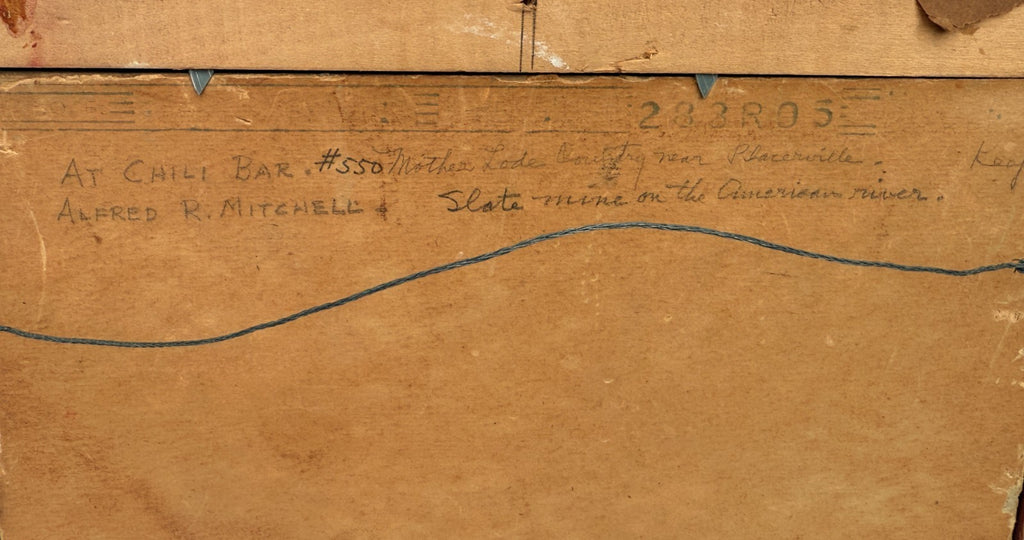 233R05
AT CHILI BAR. #550 Mother Lode Country near Placerville. Keep
ALFRED R. MITCHELL. Slate mine on the American river.